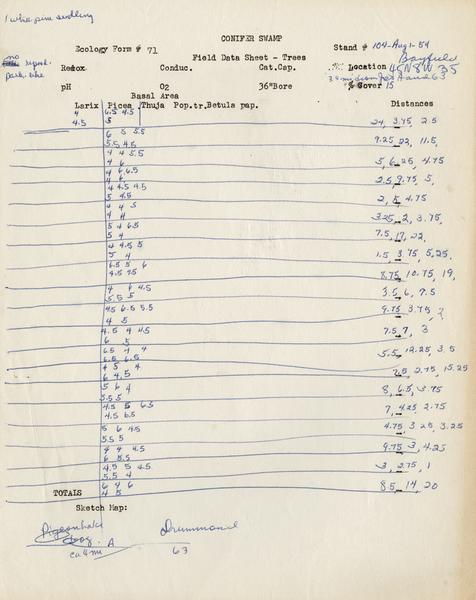 1 white pine seedling
CONIFER SWAMP
Ecology Form # 71
Stand # 104-Aug 1-59
no repod.
park like
Field Data Sheet - Trees
Bayfield
Redox Conduc. Cat.Cap. Location 45N8W 35
pH O2 36"Bore % Cover 15
Basal Area
Larix Picea Thuja Pop.tr. Betula pap. Distances
4 6.5 4.5
4.5 5 24, 3.75, 2.5
6 5 5.5
5.5 4.5 9.25, 22, 11.5,
4 4 5.5
4 6 5, 6.25, 4.75
4 6 6.5
2.5, 9.75, 5,
4 4.5 4.5
5 4.5 2, 5, 4.75
4 4 5
4 4 3.25, 2, 3.75,
5 4 6.5
5 4 7.5, 17, 22,
4 4.5 5
5 4 1.5, 3.75, 5.25,
6.5 5 6
8.75, 10.75, 19,
4 6 4.5
5.5 5 3.5, 6, 7.5
4.5 6.5 5.5
4 5 9.75, 3.75,
4.5 4 4.5
6 5 7.5, 7, 3
6.5 4 4
6.5 6.5 5.5, 12.25, 3.5
4 5 4
6 4.5 2.75, 15.25
5 6 4
5.5 5 8, 6.5, 3.75
4.5 5 6.5
4.5 6.5 7, 4.25, 2.75
5 6 4.5
5.5 5 4.75, 3.25, 3.25
4 4 4.5
6 5.5 9.75, 3, 4.25
4.5 5 4.5
5.5 4 3, 2.75, 1
6 4 6
TOTALS 4 5 8.5, 14, 20
Sketch Map:
Drummond
bog A
ca 4 mi 63